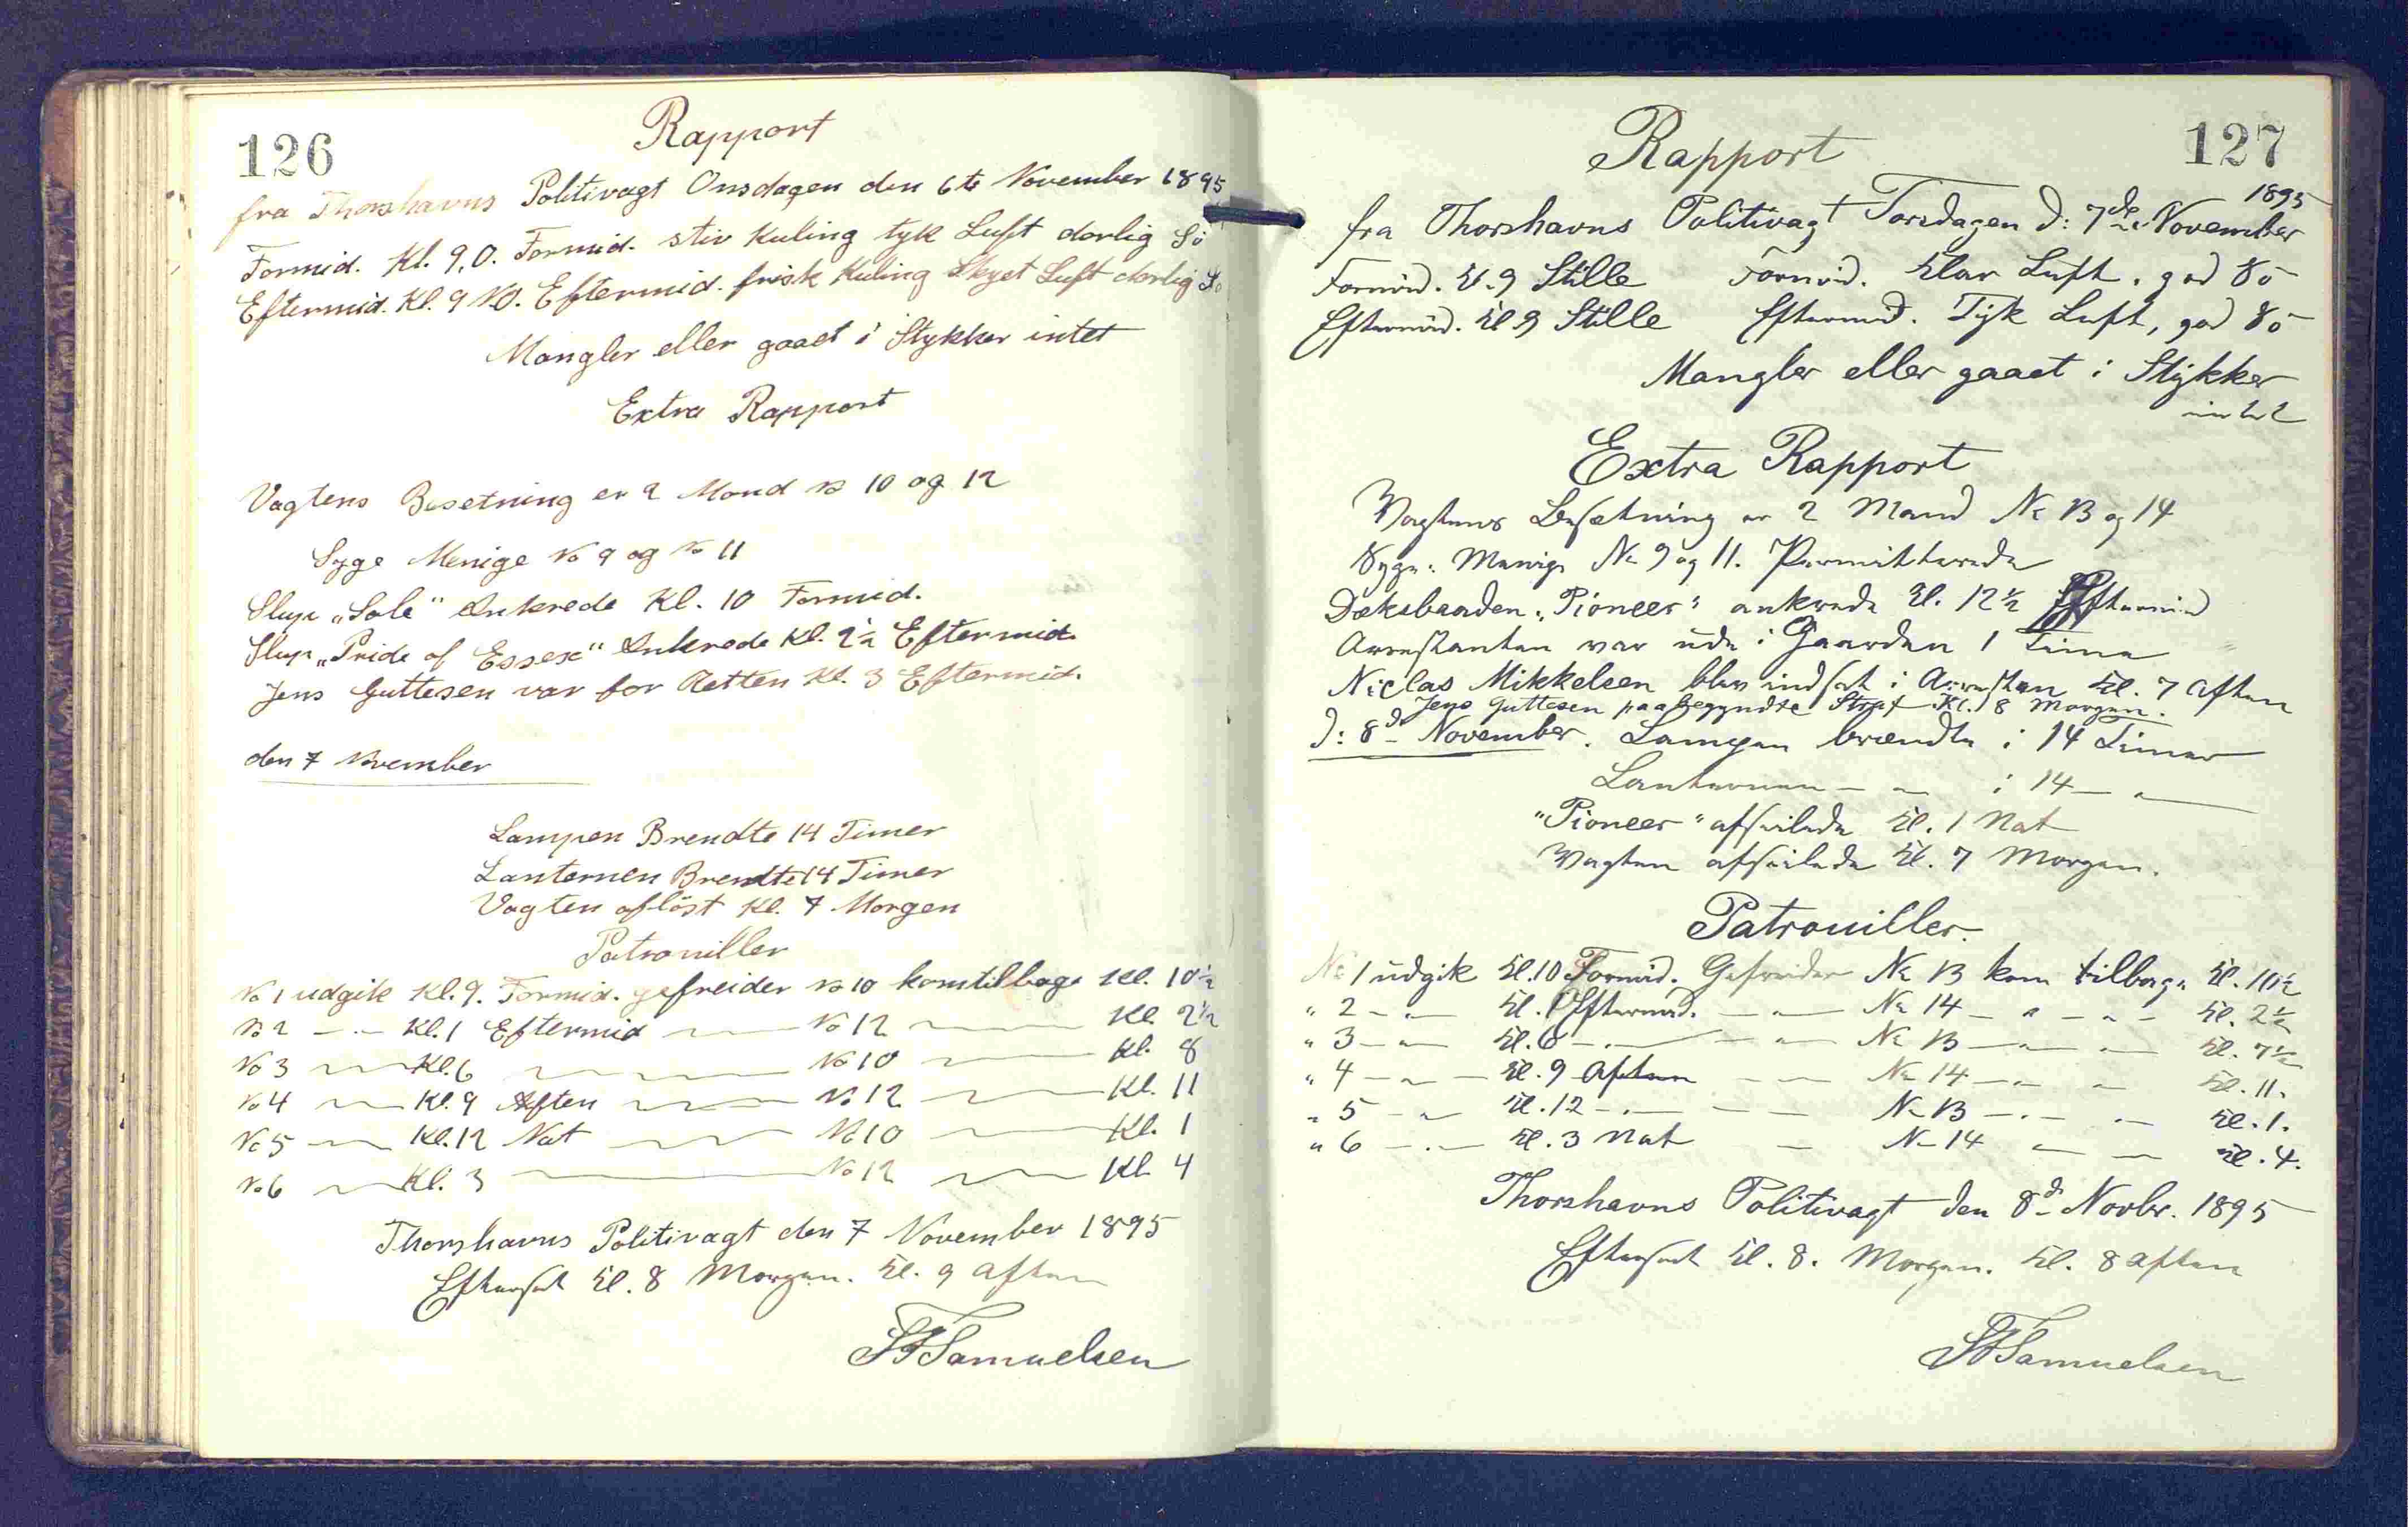 126
Rapport
fra Thorshavns Politivagt Onsdagen den 6te November 1895
Formid. Kl. 9. O. Formid. stiv Kuling tyk Luft darlig Sö
Eftermid. Kl. 9 N.O. Eftermid. frisk Kuling Skyet Luft darlig Sö
Mangler eller gaaet i Stykker intet
Extra Rapport
Vagtens Besetning er 2 Mand No 10 og 12
Syge Menige No 9 og No 11
Slup „Sole" Ankrede Kl. 10 Formid.
Slup „Pride of Essex" Ankrede Kl. 2½ Eftermid.
Jens Guttesen var for Retten Kl. 3 Eftermid.
den 7 November
Lampen Brendte 14 Timer
Lanternen Brendte 14 Timer
Vagten aflöst Kl. 7 Morgen
Patrouiller
No 1 udgik Kl. 9. Formid. gefreider No 10 kom tilbage Kl. 10½
No 2 — — Kl. 1 Eftermid — — No 12 — — Kl. 2½
No 3 — — Kl. 6 — — No 10 — — Kl. 8
No 4 — — Kl. 9 Aften — — No 12 — — Kl. 11
No 5 — — Kl. 12 Nat — — No 10 — — Kl. 1
No 6 — — Kl. 3 — — No 12 — — Kl. 4
Thorshavns Politivagt den 7 November 1895
Efterset Kl. 8 Morgen. Kl. 9 Aften
Samuelsen
127
Rapport
1895
fra Thorshavns Politivagt Torsdagen d: 7de November
Formid. Kl. 9 Stille Formid. Klar Luft, god Sö
Eftermid. Kl 9 Stille Eftermid. Tyk Luft, god Sö
Mangler eller gaaet i Stykker
intet
Extra Rapport
Vagtens Besætning er 2 Mand No 13 og 14
Syge: Menige No 9 og 11. Permitterede
Dæksbaaden „Pioneer" ankrede Kl. 12½ Eftermid
Arrestanten var ude i Gaarden 1 Time
Niclas Mikkelsen blev indsat i Arresten Kl. 7 Aften
Jens Guttesen paabegyndte Straf Kl. 8 Morgen.
d: 8d November. Lampen brændte i 14 Timer
Lanternen — — i 14 — —
"Pioneer" afseilede Kl. 1 Nat
Vagten afseilede Kl. 7 Morgen.
Patrouiller.
No 1 udgik Kl. 10 Formid. Gefreider No 13 kom tilbage Kl. 11½
" 2 — — Kl. 1 Eftermid. — — No 14 — — Kl. 2½
" 3 — — Kl. 6 — — No 13 — — Kl. 7½
" 4 — — Kl. 9 Aften — — No 14 — — Kl. 11.
" 5 — — Kl. 12 — — No 13 — — Kl. 1.
" 6 — — Kl. 3 Nat — No 14 — — Kl. 4.
Thorshavns Politivagt den 8d Novbr. 1895
Efterset Kl. 8. Morgen. Kl. 8 Aften
Samuelsen